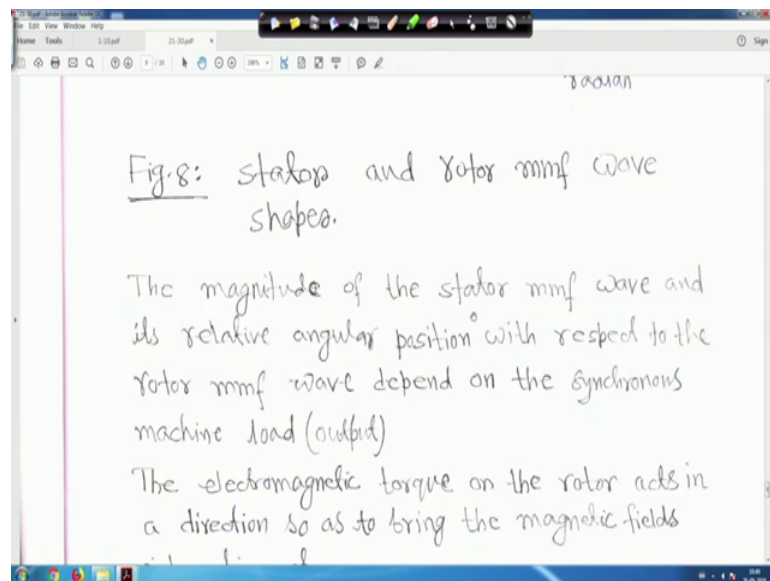 21-30.pdf - Adobe Acrobat Reader DC
File Edit View Window Help
Home Tools 1-10.pdf 21-30.pdf Sign
radian
Fig.8: stator and rotor mmf wave
shapes.
The magnitude of the stator mmf wave and
its relative angular position with respect to the
rotor mmf wave depend on the synchronous
machine load (output)
The electromagnetic torque on the rotor acts in
a direction so as to bring the magnetic fields